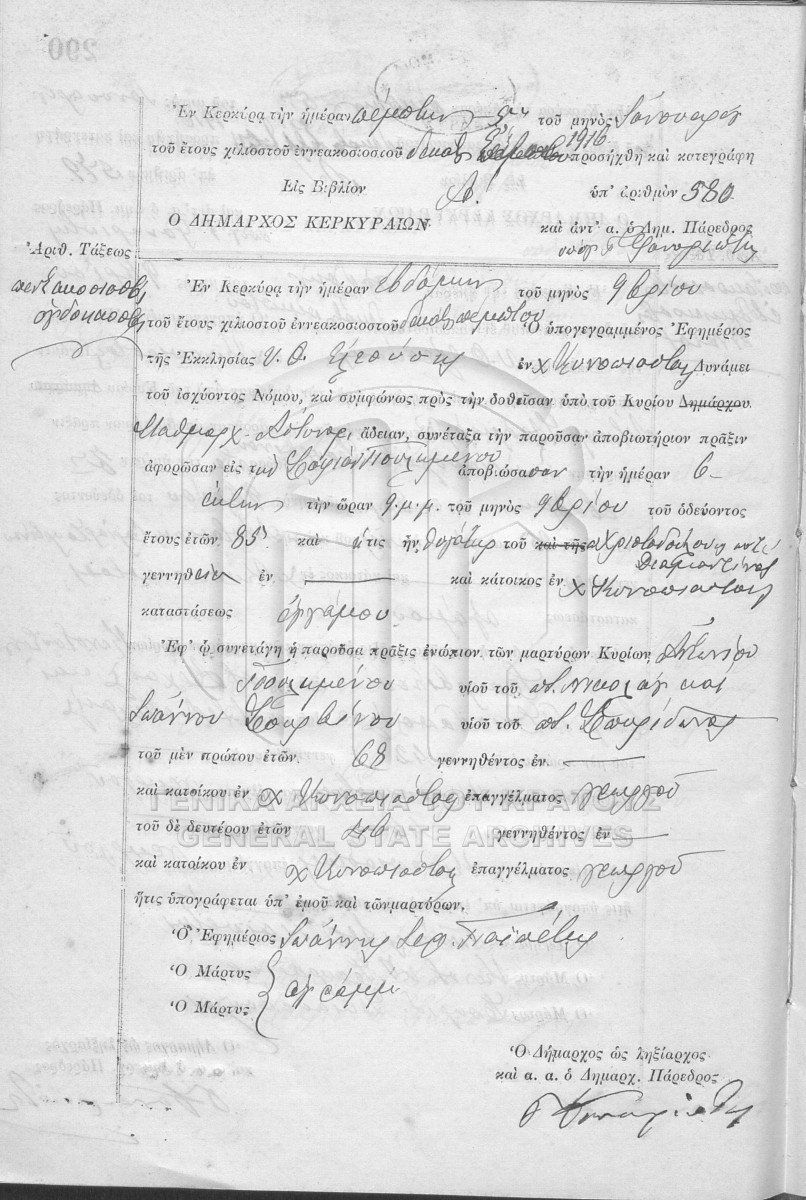 Ἐν Κερκύρᾳ τὴν ἡμέραν πέμπτην 5ην τοῦ μηνὸς
τοῦ ἔτους χιλιοστοῦ ἐννεακοσιοστοῦ 1916 προσήχθη καὶ κατεγράφη
Εἰς Βιβλίον Α. ὑπ' ἀριθμὸν 580
Ο ΔΗΜΑΡΧΟΣ ΚΕΡΚΥΡΑΙΩΝ καὶ ἀντ' α. ὁ Δημ. Πάρεδρος
Ἀριθ. Τάξεως
πεντακοσιοστὸς
ὀγδοηκοστὸς
Ἐν Κερκύρᾳ τὴν ἡμέραν ἑβδόμην τοῦ μηνὸς 9βρίου
τοῦ ἔτους χιλιοστοῦ ἐννεακοσιοστοῦ δεκάτου πέμπτου Ὁ ὑπογεγραμμένος Ἐφημέριος
τῆς Ἐκκλησίας Υ. Θ. Ἐλεούσης ἐν χ Κυνοπιαστῶν Δυνάμει
τοῦ ἰσχύοντος Νόμου, καὶ συμφώνως πρὸς τὴν δοθεῖσαν ὑπὸ τοῦ Κυρίου Δημάρχου
ἄδειαν, συνέταξα τὴν παροῦσαν ἀποβιωτήριον πρᾶξιν
ἀφορῶσαν εἰς τὴν ἀποβιώσασαν τὴν ἡμέραν 6
ἕκτην τὴν ὥραν 9 μ.μ. τοῦ μηνὸς 9βρίου τοῦ ὁδεύοντος
ἔτους ἐτῶν 85 καὶ ἥτις ἦν θυγάτηρ τοῦ καὶ τῆς Χριστοδούλου ποτὲ
Διαμαντίνας
γεννηθεῖσα ἐν — καὶ κάτοικος ἐν χ Κυνοπιαστῶν
καταστάσεως ἀγάμου
Ἐφ' ᾧ συνετάγη ἡ παροῦσα πρᾶξις ἐνώπιον τῶν μαρτύρων Κυρίων Ἀντωνίου
υἱοῦ τοῦ π. Νικολάου καὶ
Ἰωάννου υἱοῦ τοῦ π. Σπυρίδωνος
τοῦ μὲν πρώτου ἐτῶν 68 γεννηθέντος ἐν —
καὶ κατοίκου ἐν χ Κυνοπιαστῶν ἐπαγγέλματος γεωργοῦ
ΓΕΝΙΚΑ ΑΡΧΕΙΑ ΤΟΥ ΚΡΑΤΟΥΣ
τοῦ δὲ δευτέρου ἐτῶν 46 γεννηθέντος ἐν —
GENERAL STATE ARCHIVES
καὶ κατοίκου ἐν χ Κυνοπιαστῶν ἐπαγγέλματος γεωργοῦ
ἥτις ὑπογράφεται ὑπ' ἐμοῦ καὶ τῶν μαρτύρων.
Ὁ Ἐφημέριος Ἰωάννης
Ὁ Μάρτυς
ἀγράμμ.
Ὁ Μάρτυς
Ὁ Δήμαρχος ὡς ληξίαρχος
καὶ α. α. ὁ Δημαρχ. Πάρεδρος